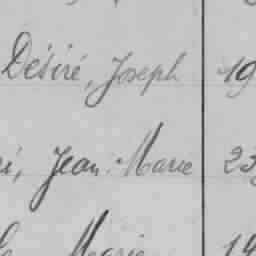 Désiré, Joseph 19
i, Jean Marie 23
Marie 19